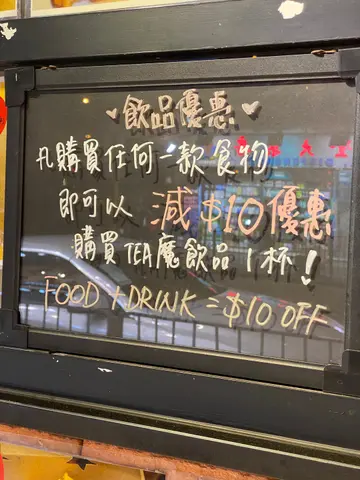 飲品優惠
凡購買任何一款食物
即可以 減$10優惠
購買TEA魔飲品1杯!
FOOD + DRINK = $10 OFF